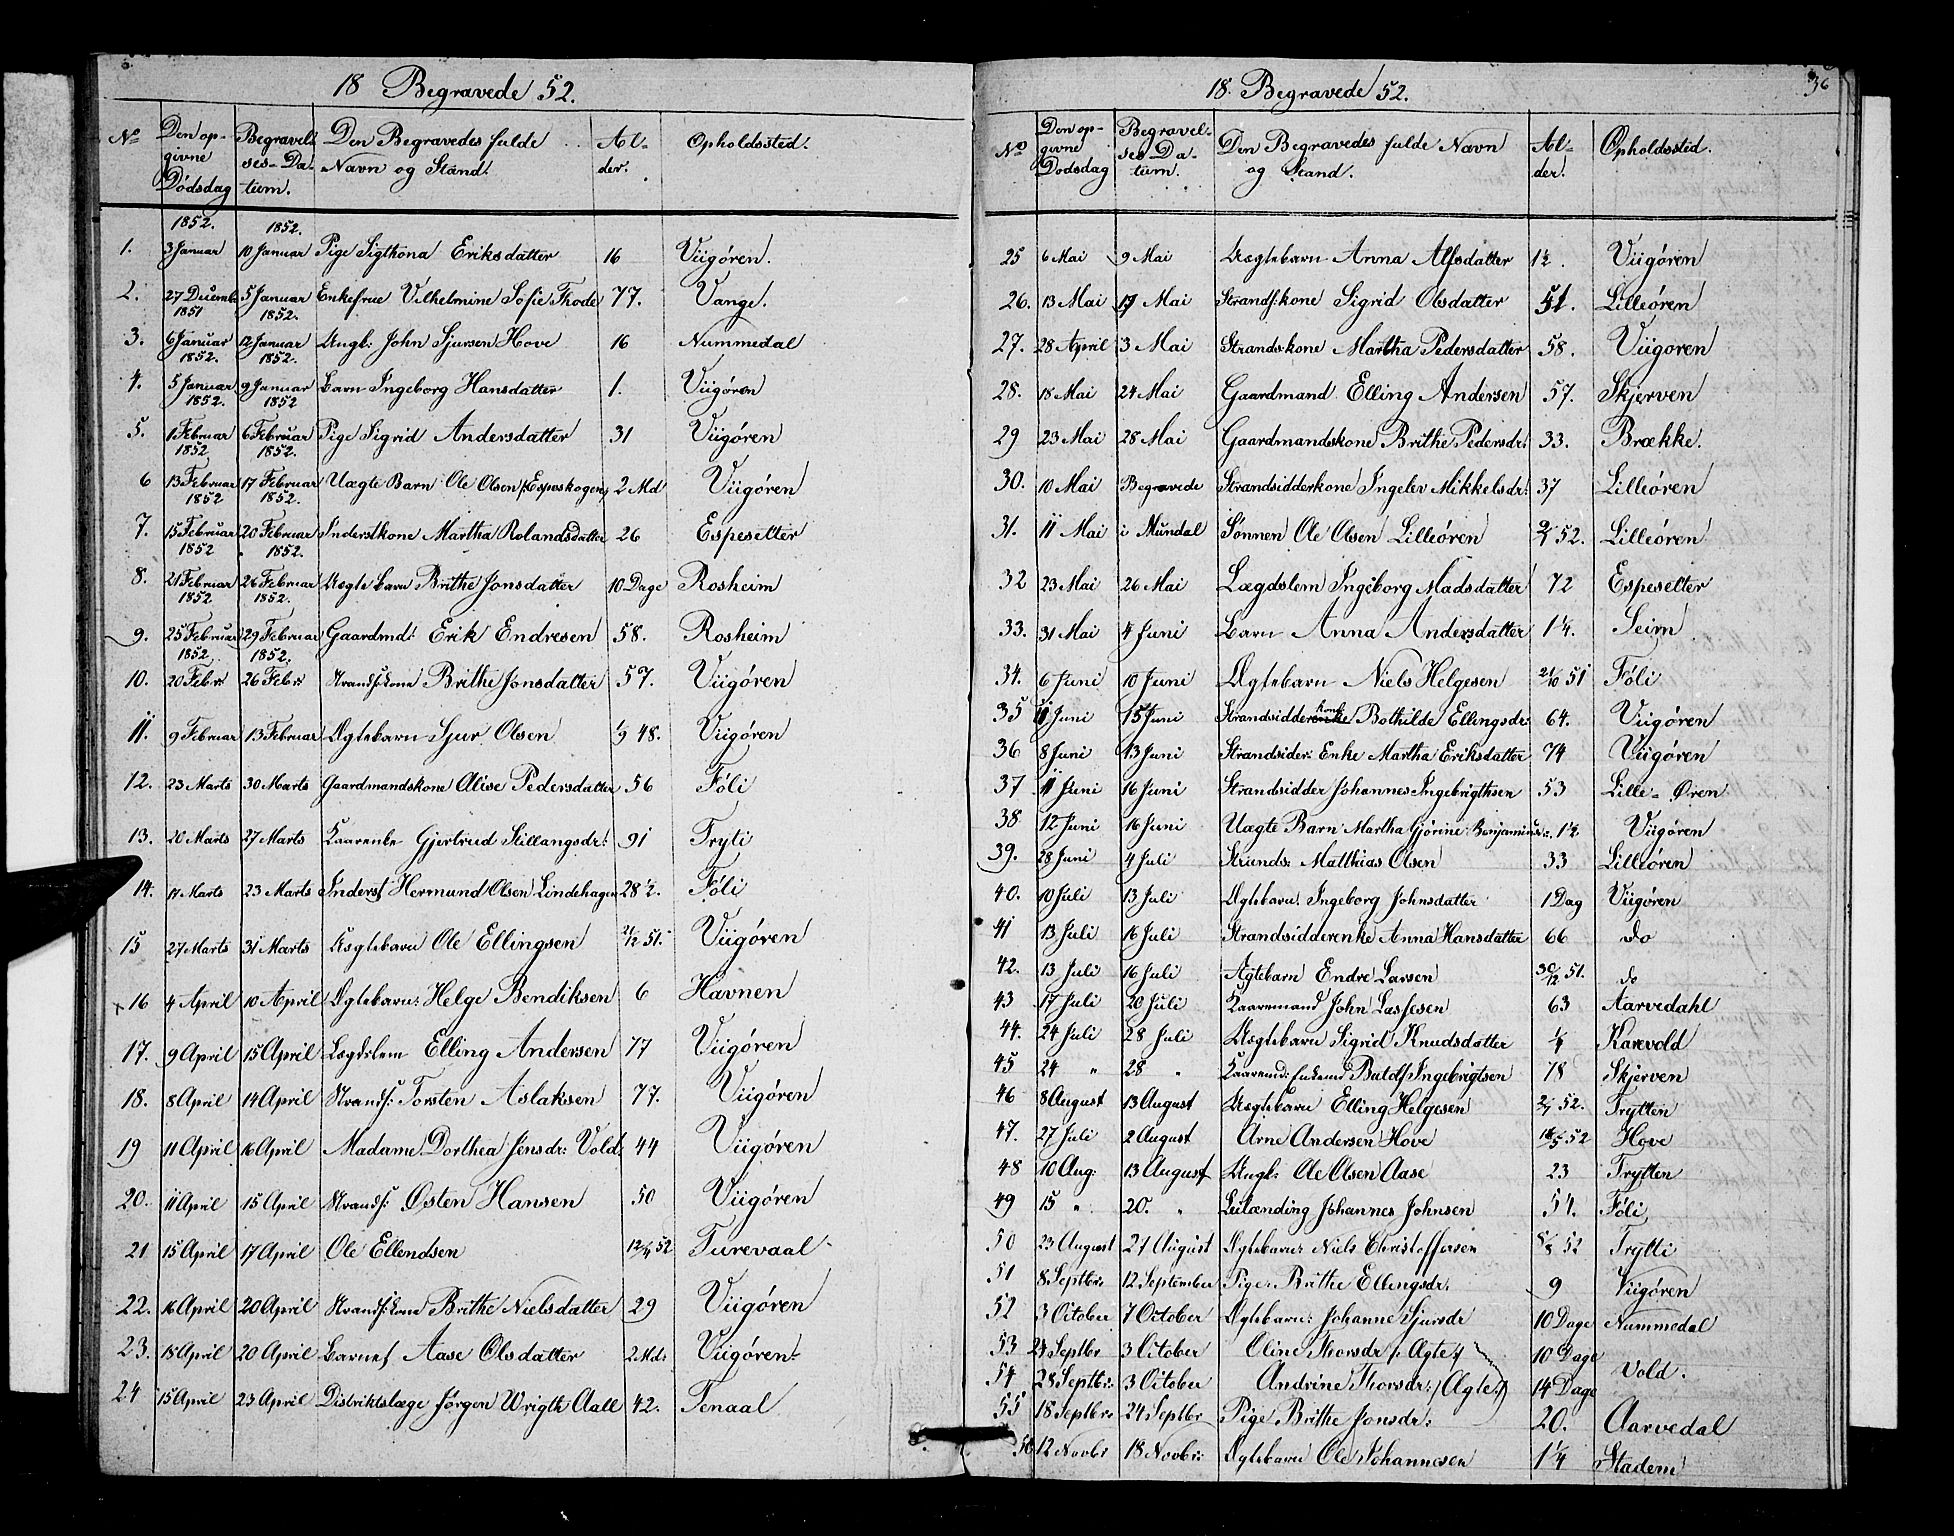 18 Begravede 52.
No Den opgivne Dödsdag Begravelses-Datum. Den Begravedes fulde Navn og Stand. Alder. Opholdssted.
1852. 1852.
1. 3 Januar 10 Januar Pige Sigthona Eriksdatter 16 Viigören.
2. 27 Decembr 1851 5 Januar 1852. Enkefrue Vilhelmine Sofie Thode 77. Vange.
3. 6 Januar 1852. 12 Januar 1852. Ungk: John Sjursen Hove 16 Nummedal
4. 5 Januar 1852. 9 Januar 1852 Barn Ingeborg Hansdatter 1. Viigören
5. 1 Februar 1852 6 Februar 1852. Pige Sigrid Andersdatter 31 Viigören
6 13 Februar 1852 17 Februar 1852. Uægte Barn Ole Olsen (Espeskogen) 2 Md Viigören
7. 15 Februar 1852 20 Februar 1852. Inderstkone Martha Rolandsdatter 26 Espesetter
8. 21 Februar 1852 26 Februar 1852. Ægte barn Brithe Jonsdatter 10 Dage Rosheim
9. 25 Februar 1852. 29 Februar 1852. Gaardmd: Erik Endresen 58. Rosheim
10. 20 Febr: 26 Febr: Strandskone Brithe Jonsdatter 57. Viigören
11. 9 Februar 13 Februar Ægtebarn Sjur Olsen 48. Viigören
12. 23 Marts 30 Marts Gaardmandskone Alise Pedersdatter 56 Föli
13. 20 Marts 27 Marts Kaarenke Gjertrud Stillangsdr: 91 Tryti
14. 17 Marts 23 Marts Inderst Hermund Olsen Lindehagen 28 1/2. Föli
15 27 Marts 31 Marts Ægtebarn Ole Ellingsen 21/12 51. Viigören
16 4 April 10 April Ægtebarn: Helge Bendiksen 6 Havnen
17. 9 April 15 April Lægdslem Elling Andersen 77 Viigören
18. 8 April 14 April Strands: Torsten Aslaksen 77. Viigören
19 11 April 16 April Madame Dorthea Jensdr: Vold: 44 Viigören
20. 11 April 15 April Strands: Østen Hansen 50 Viigören
21 15 April 17 April Ole Ellendsen 12/4 52 Turevaal
22. 16 April 20 April Strands: kone Brithe Nielsdatter 29 Viigören
23. 18 April 20 April Barnet Aase Olsdatter 2 Md: Viigören
24 15 April 23 April Distriktslæge Jörgen Wrigth Aall 42. Tenaal
18. Begravede 52.
36
No Den opgivne Dödsdag Begravelses-Datum. Den Begravedes fulde Navn og Stand. Alder. Opholdssted.
25 6 Mai 9 Mai Uægtebarn Anna Alfsdatter 1 1/2. Viigören
26. 13 Mai 17 Mai Strandskone Sigrid Olsdatter 51. Lilleören
27. 28 April 3 Mai Strandskone Martha Pedersdatter 58. Viigören
28. 18 Mai 24 Mai Gaardmand Elling Andersen 57. Skjerven
29 23 Mai 28 Mai Gaardmandskone Brithe Pedersdr: 33. Brække.
30. 10 Mai Begravede Strandsidderkone Ingelev Mikkelsdr: 37 Lilleören
31. 11 Mai i Mundal Sönnen Ole Olsen Lilleören 52. Lilleören
32 23 Mai 26 Mai Lægdslem Ingeborg Madsdatter 72 Espesetter
33. 31 Mai 4 Juni Barn Anna Andersdatter 1 1/4. Seim
34. 6 Juni 10 Juni Ægtebarn Niels Helgesen 21/10 51 Föli
35 11 Juni 15 Juni Strandsidderenke kone Bothilde Ellingsdr: 64. Viigören
36 8 Juni 13 Juni Strandsider: Enke Martha Eriksdatter 74 Viigören
37 11 Juni 16 Juni Strandsidder Johannes Ingebrigthsen 53 Lille-Øren
38 12 Juni 16 Juni Uægte Barn Martha Gjörine Benjaminsd: 1 1/2. Viigören
39. 28 Juni 4 Juli Strands: Matthias Olsen 33 Lilleören
40. 10 Juli 13 Juli Ægtebarn: Ingeborg Johnsdatter 1 Dag Viigören
41 13 Juli 16 Juli Strandsidderenke Anna Hansdatter 66 do
42. 13 Juli 16 Juli Ægtebarn Endre Larsen 30/12 51. do
43 17 Juli 20 Juli Kaaremand John Lassesen 63 Aarvedahl
44. 24 Juli 28 Juli Uægtebarn Sigrid Knudsdatter 1/4 Karevold
45 24 " 28 " Kaaremd: Enkemd Buldf Ingebrigtsen 78 Skjerven
46 8 August 13 August Uægtebarn Elling Helgesen 2/7 52. Trytten
47. 27 Juli 2 August Arne Andersen Hove 16/5 52 Hove
48 10 Aug: 13 August Ungk: Ole Olsen Aase 23 Trytten
49 15 " 20. " Leilænding Johannes Johnsen 54. Föli
50 23 August 27 August Ægtebarn: Niels Christoffersen 8/8 52 Trytti
51 8 Septbr: 12 September Pige: Brithe Ellingsdr. 9 Viigören
52 3 October 7 October Ægtebarn: Johanne Sjursdr 10 Dage Nummedal
53 24 Septbr 3 October Oline Thorsdr /: Ægte :/ 10 Dage Vold.
54 28 Septbr: 3 October Andrine Thorsdr: /: Ægte :/ 14 Dage
55 18 Septbr: 24 Septbr Pige Brithe Jonsdr: 20. Aarvedal
56 12 Novbr 18 Novbr: Ægtebarn Ole Johannesen 1 1/4 Stadem